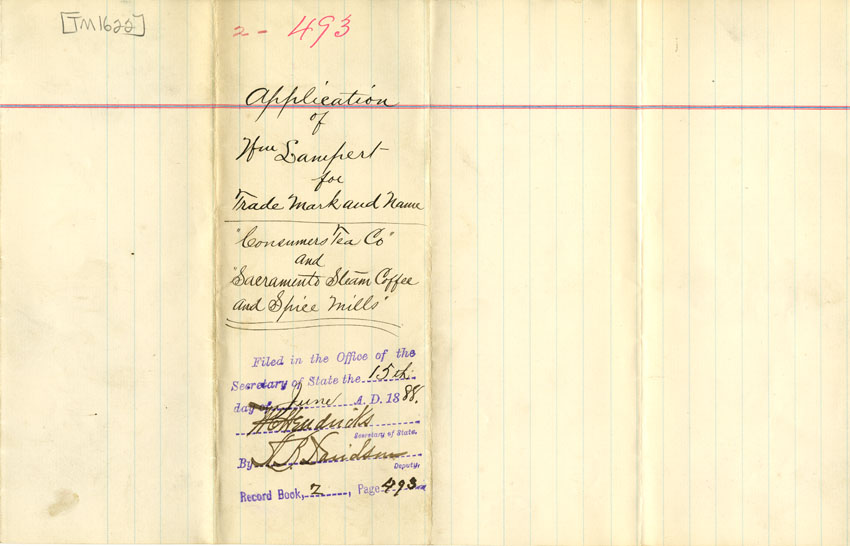 [TM1622]
2 - 493
Application
of
Wm Lampert
for
Trade Mark and Name
"Consumers Tea Co"
and
"Sacramento Steam Coffee
and Spice Mills"
Filed in the Office of the
Secretary of State the 15th
day of June A. D. 1888.
W C Hendricks
Secretary of State.
By A. R. Davidson
Deputy.
Record Book, 2, Page 493